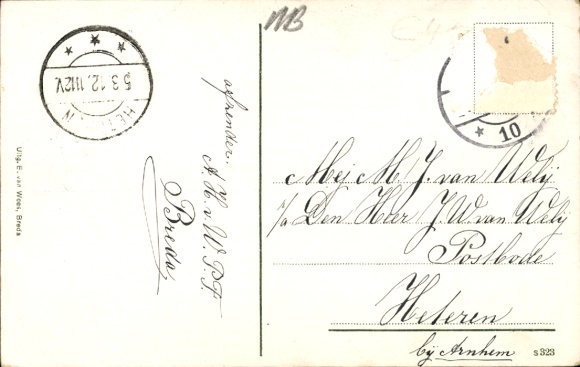 MB
5.3.12.11-12V.
HETEREN
afzender.
A H v W. P.F.
Breda
Uitg. E. van Wees, Breda
10
Mej M. J. van Wely
p/a Den Heer J W van Wely
Postbode
Heteren
bij Arnhem
s 323